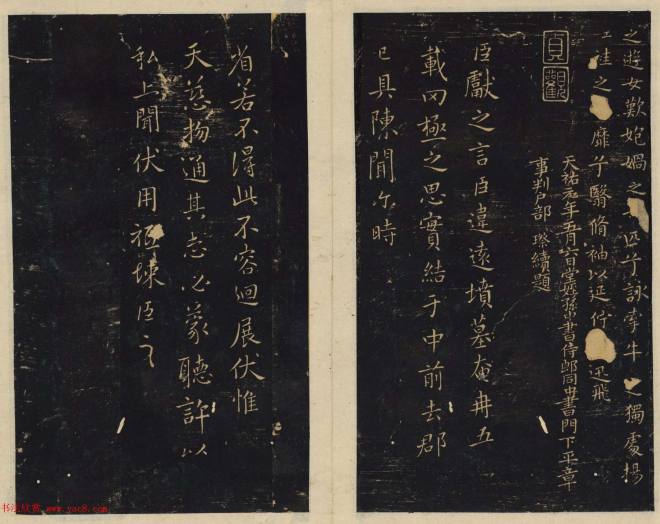 之遊女歎匏媧之匹兮詠牽牛之獨處揚
袿之靡兮翳脩袖以延佇迅飛
天祐元年五月六日堂姪孫中書侍郎同中書門下平章
事判戶部璨續題
貞觀
臣獻之言臣違遠墳墓奄冉五
載罔極之思實結于中前去郡
已具陳聞尓時
省若不得此不容迴展伏惟
天慈物通其志必蒙聽許以
私上聞伏用祗悚臣之
书法欣赏 www.yac8.com